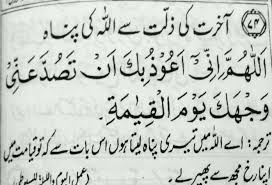 ۷۴ آخرت کی ذلت سے اللہ کی پناہ
اَللّٰهُمَّ اِنِّیْ اَعُوْذُ بِكَ اَنْ تَصُدَّ عَنِّیْ
وَجْهَكَ یَوْمَ الْقِیٰمَةِ۔
ترجمہ: اے اللہ میں تیری پناہ لیتا ہوں اس بات سے کہ تو قیامت میں
اپنا رخ مجھ سے پھیر لے۔ (عمل الیوم واللیلۃ للسیوطی)